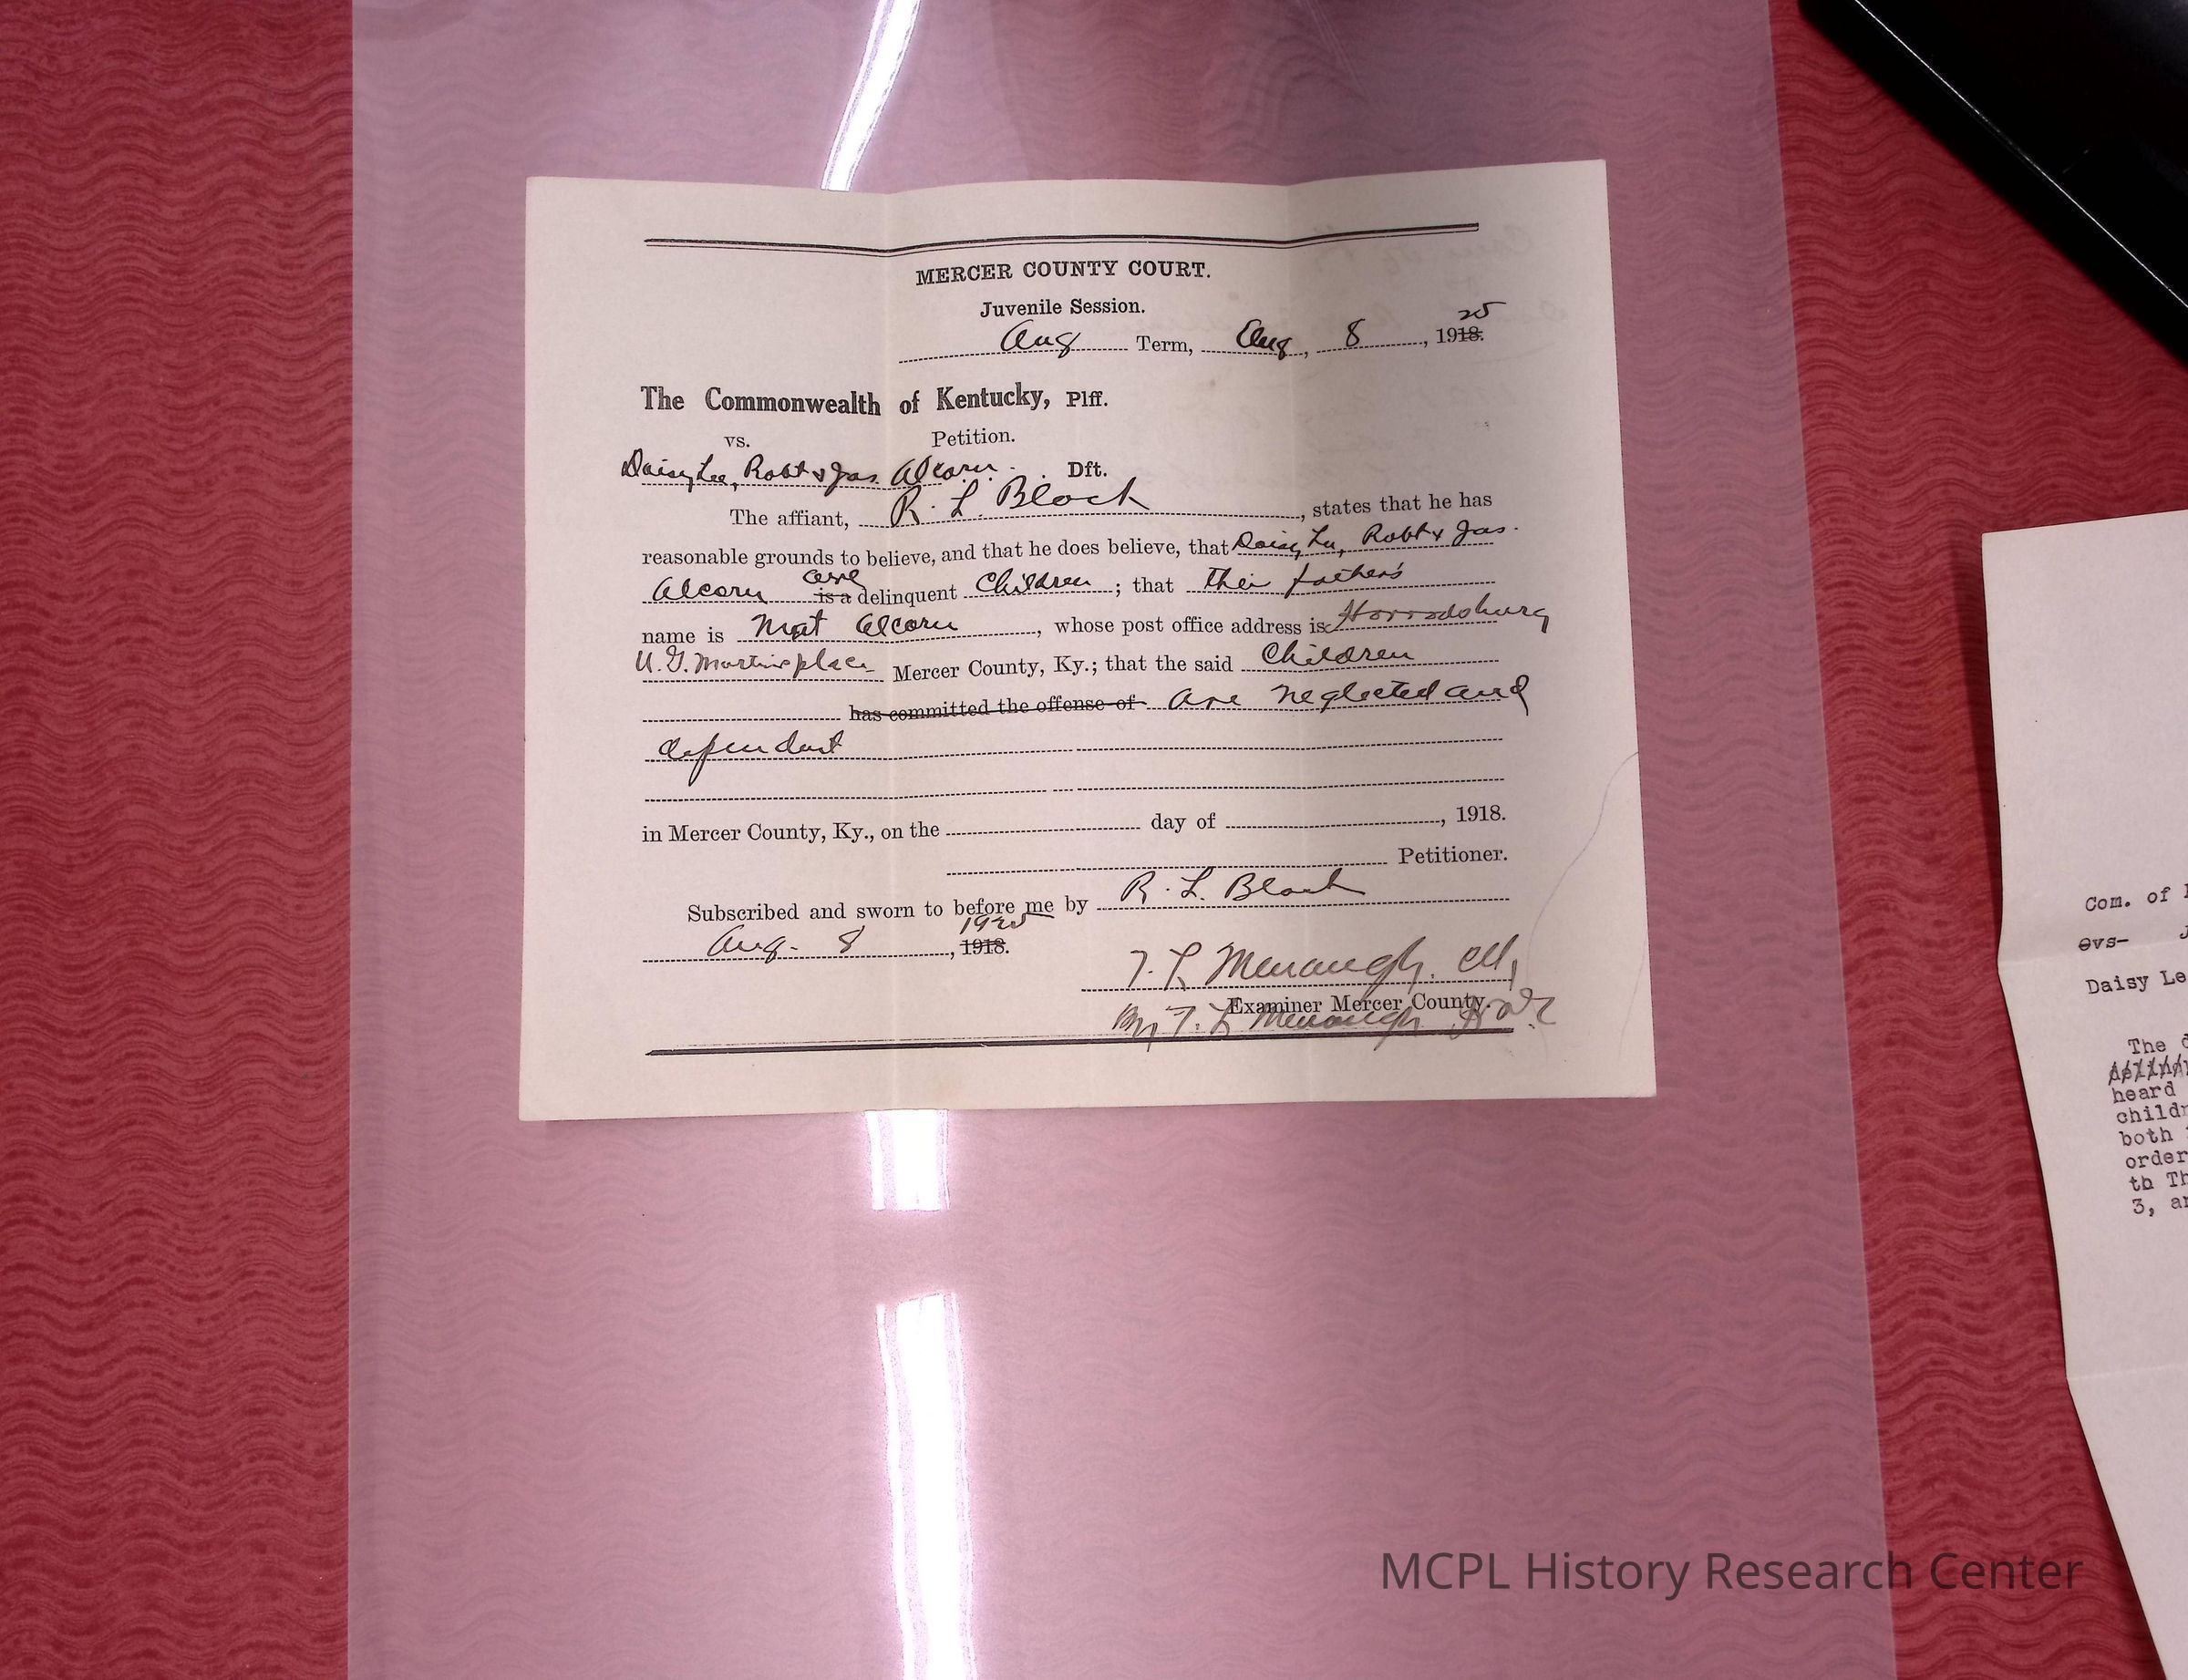 MERCER COUNTY COURT.
Juvenile Session.
Aug Term, Aug, 8, 1918. 25
The Commonwealth of Kentucky, Plff.
vs. Petition.
Daisy Lee, Robt & Jas. Alcorn. Dft.
The affiant, R. L. Black, states that he has
reasonable grounds to believe, and that he does believe, that Daisy Lee, Robt & Jas.
Alcorn is a are delinquent Children; that their father's
name is Mat Alcorn, whose post office address is Harrodsburg
U. G. Martin place Mercer County, Ky.; that the said Children
has committed the offense of are neglected and
dependent
in Mercer County, Ky., on the day of, 1918.
Petitioner.
Subscribed and sworn to before me by R. L. Black
Aug. 8, 1918. 1925
T. L. Menaugh.
Examiner Mercer County.
By T. L. Menaugh
Com. of
vs-
Daisy Le
The
heard
childr
both
order
th Th
3, an
MCPL History Research Center